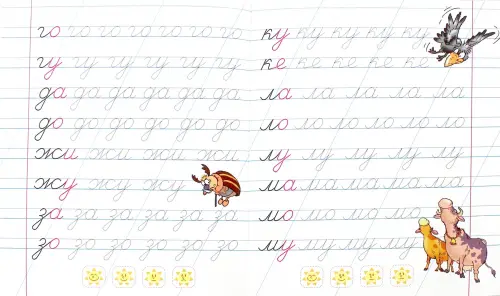 го го го го го го го
гу гу гу гу гу гу
да да да да да да
до до до до до до
жи жи жи жи
жу жу жу
за за за за за за
зо зо зо зо зо зо
ку ку ку ку ку
ке ке ке ке ке
ла ла ла ла ла
ло ло ло ло ло ло
лу лу лу лу лу
ма ма ма ма ма ма
мо мо мо мо
му му му му му